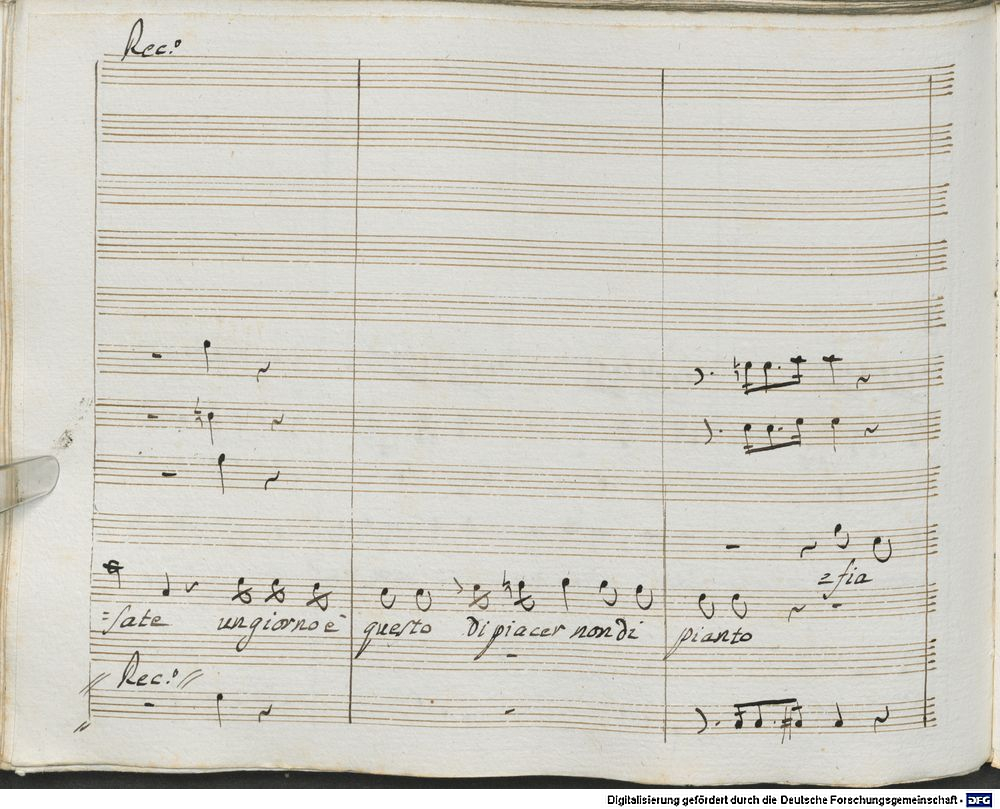 Rec:º
=fia
=sate un giorno è questo di piacer non di pianto
Rec:º
Digitalisierung gefördert durch die Deutsche Forschungsgemeinschaft - DFG